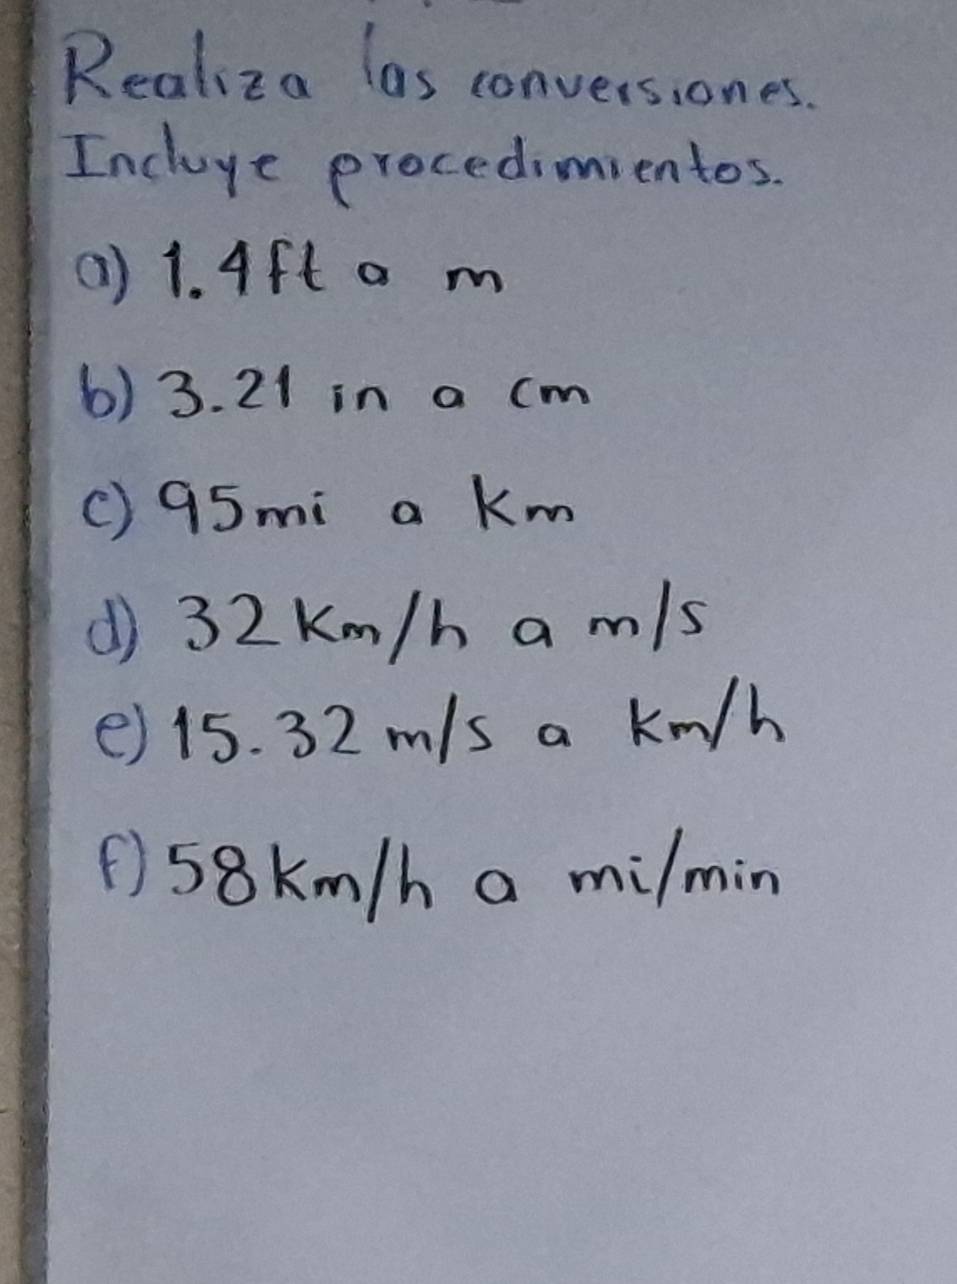 Realiza las conversiones.
Incluye procedimientos.
a) 1.4 ft a m
b) 3.21 in a cm
c) 95 mi a Km
d) 32 Km/h a m/s
e) 15.32 m/s a Km/h
f) 58 Km/h a mi/min